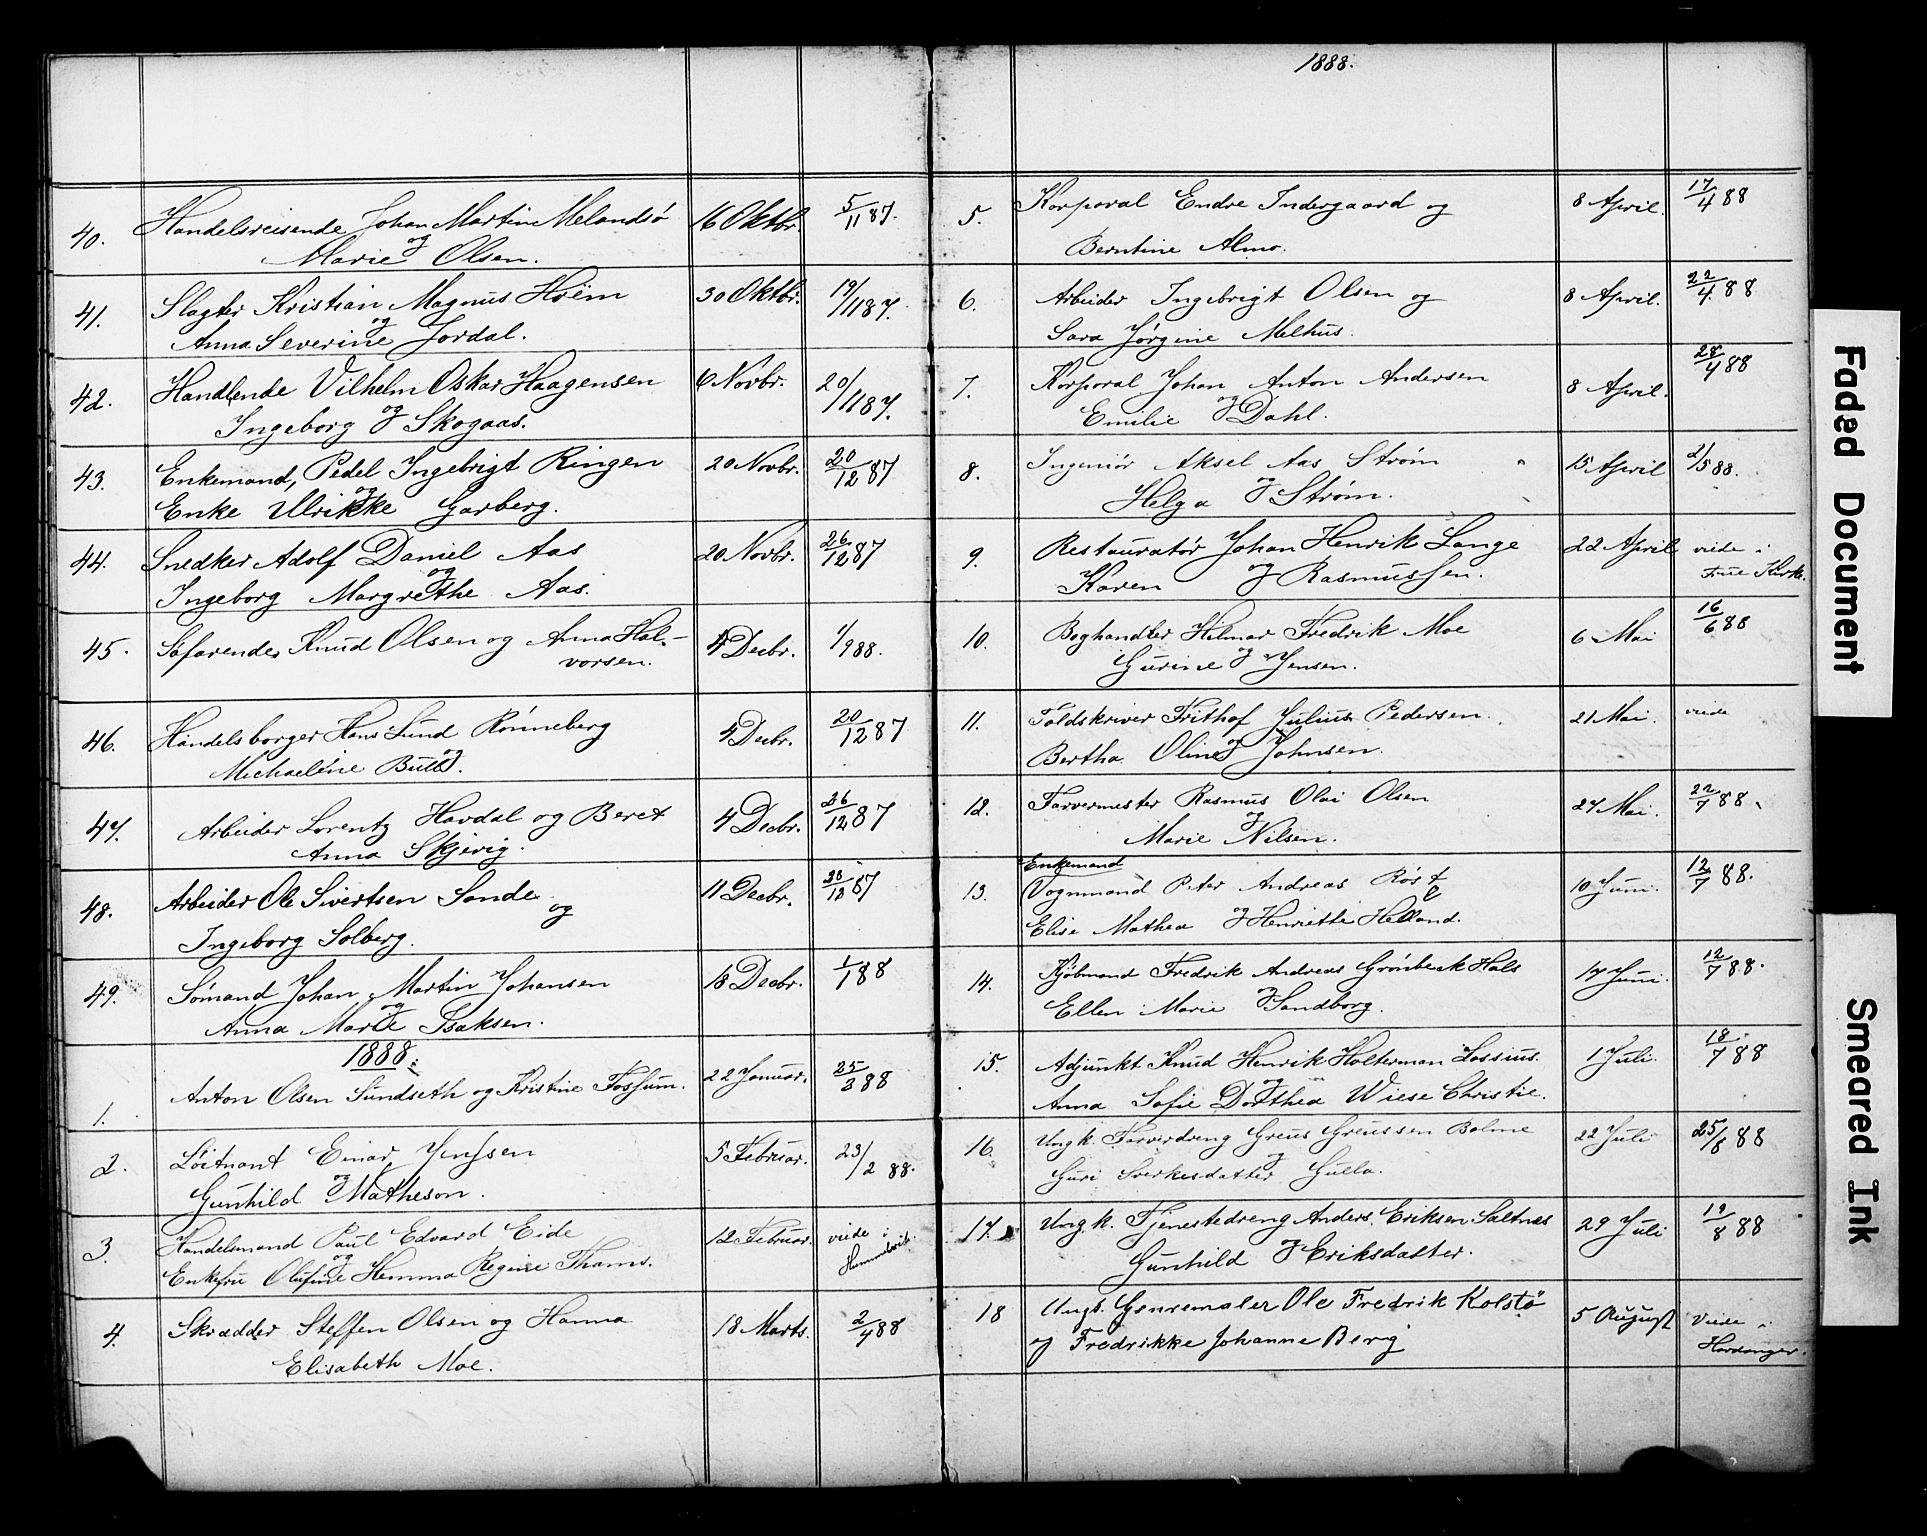 40. Handelsreisende Johan Martin Melandsö 16 Oktbr. 5/11 87.
og
Marie Olsen.
41. Slagter Kristian Magnus Hoëm 30 Oktbr. 19/11 87.
og
Anna Severine Jordal.
42. Handlende Vilhelm Oskar Haagensen 6 Novbr. 20/11 87.
Ingeborg og Skogaas.
43. Enkemand, Pedel Ingebrigt Ringen 20 Novbr. 20/12 87
og
Enke Ulrikke Garberg.
44. Snedker Adolf Daniel Aas 20 Novbr. 26/12 87
og
Ingeborg Margrethe Aas.
45. Söfarende Knud Olsen og Anna Hal- 4 Decbr. 1/9 88.
vorsen.
46. Handelsborger Hans Lund Rönneberg 4 Decbr. 20/12 87
og
Michaeline Bull.
47. Arbeider Lorentz Havdal og Beret 4 Decbr. 26/12 87
Anna Skjevig.
48. Arbeider Ole Sivertsen Sande 11 Decbr. 28/12 87
og
Ingeborg Solberg.
49. Sömand Johan Martin Johansen 18 Decbr. 1/1 88
og
Anna Marie Isaksen.
1888.
1. Anton Olsen Sundseth og Kristine Fossum. 22 Januar. 25/3 88
2. Löitnant Einar Jenssen 5 Februar. 23/2 88.
og
Gunhild Matheson.
3. Handelsmand Paul Edvard Eide 12 Februar. viede i
og
Enkefru Olufine Hemma Regine Thams.
4. Skrædder Steffen Olsen og Hanna 18 Marts. 2/4 88
Elisabeth Moe.
1888.
5. Korporal Endre Indergaard og 8 April. 17/4 88
Berntine Almo.
6. Arbeider Ingebrigt Olsen og 8 April. 22/4 88
Sara Jørgine Melhus.
7. Korporal Johan Anton Andersen 8 April. 28/4 88
Emilie og Dahl.
8. Ingeniör Aksel Aas Ström 15 April 2/5 88.
Helga og Ström.
9. Restauratør Johan Henrik Lange 22 April viede i
Karen og Rasmussen. Frue Kirke.
10. Boghandler Hilmar Fredrik Moe 6 Mai 16/6 88
Gurine og Jensen.
11. Toldskriver Frithof Julius Pedersen 21 Mai. viede
Bertha Oline og Johnsen.
12. Farvermester Rasmus Olai Olsen 27 Mai. 22/7 88.
og
Marie Nilsen.
Enkemand
13. Vognmand Peter Andreas Røst 10 Juni. 12/7 88.
Elise Mathea og Henriette Helland.
14. Kjöbmand Fredrik Andreas Grönbeck Hals 17 Juni. 12/7 88.
Ellen Marie og Sandborg.
15. Adjunkt Knud Henrik Holterman Lossius. 1 Juli. 18/7 88
og
Anna Sofie Dorthea Wiese Christie.
16. Ungk. Farverdreng Greus Greussen Bolme 22 Juli 25/8 88
og
Guri Sverkesdatter Gulla.
17. Ungk. Tjenestedreng Anders Eriksen Saltnes 29 Juli 19/8 88
Gunhild og Eriksdatter.
18 Ungk. Genremaler Ole Fredrik Kolstö 5 August Viede i
og Fredrikke Johanne Berg Hardanger.
Faded Document
Smeared Ink